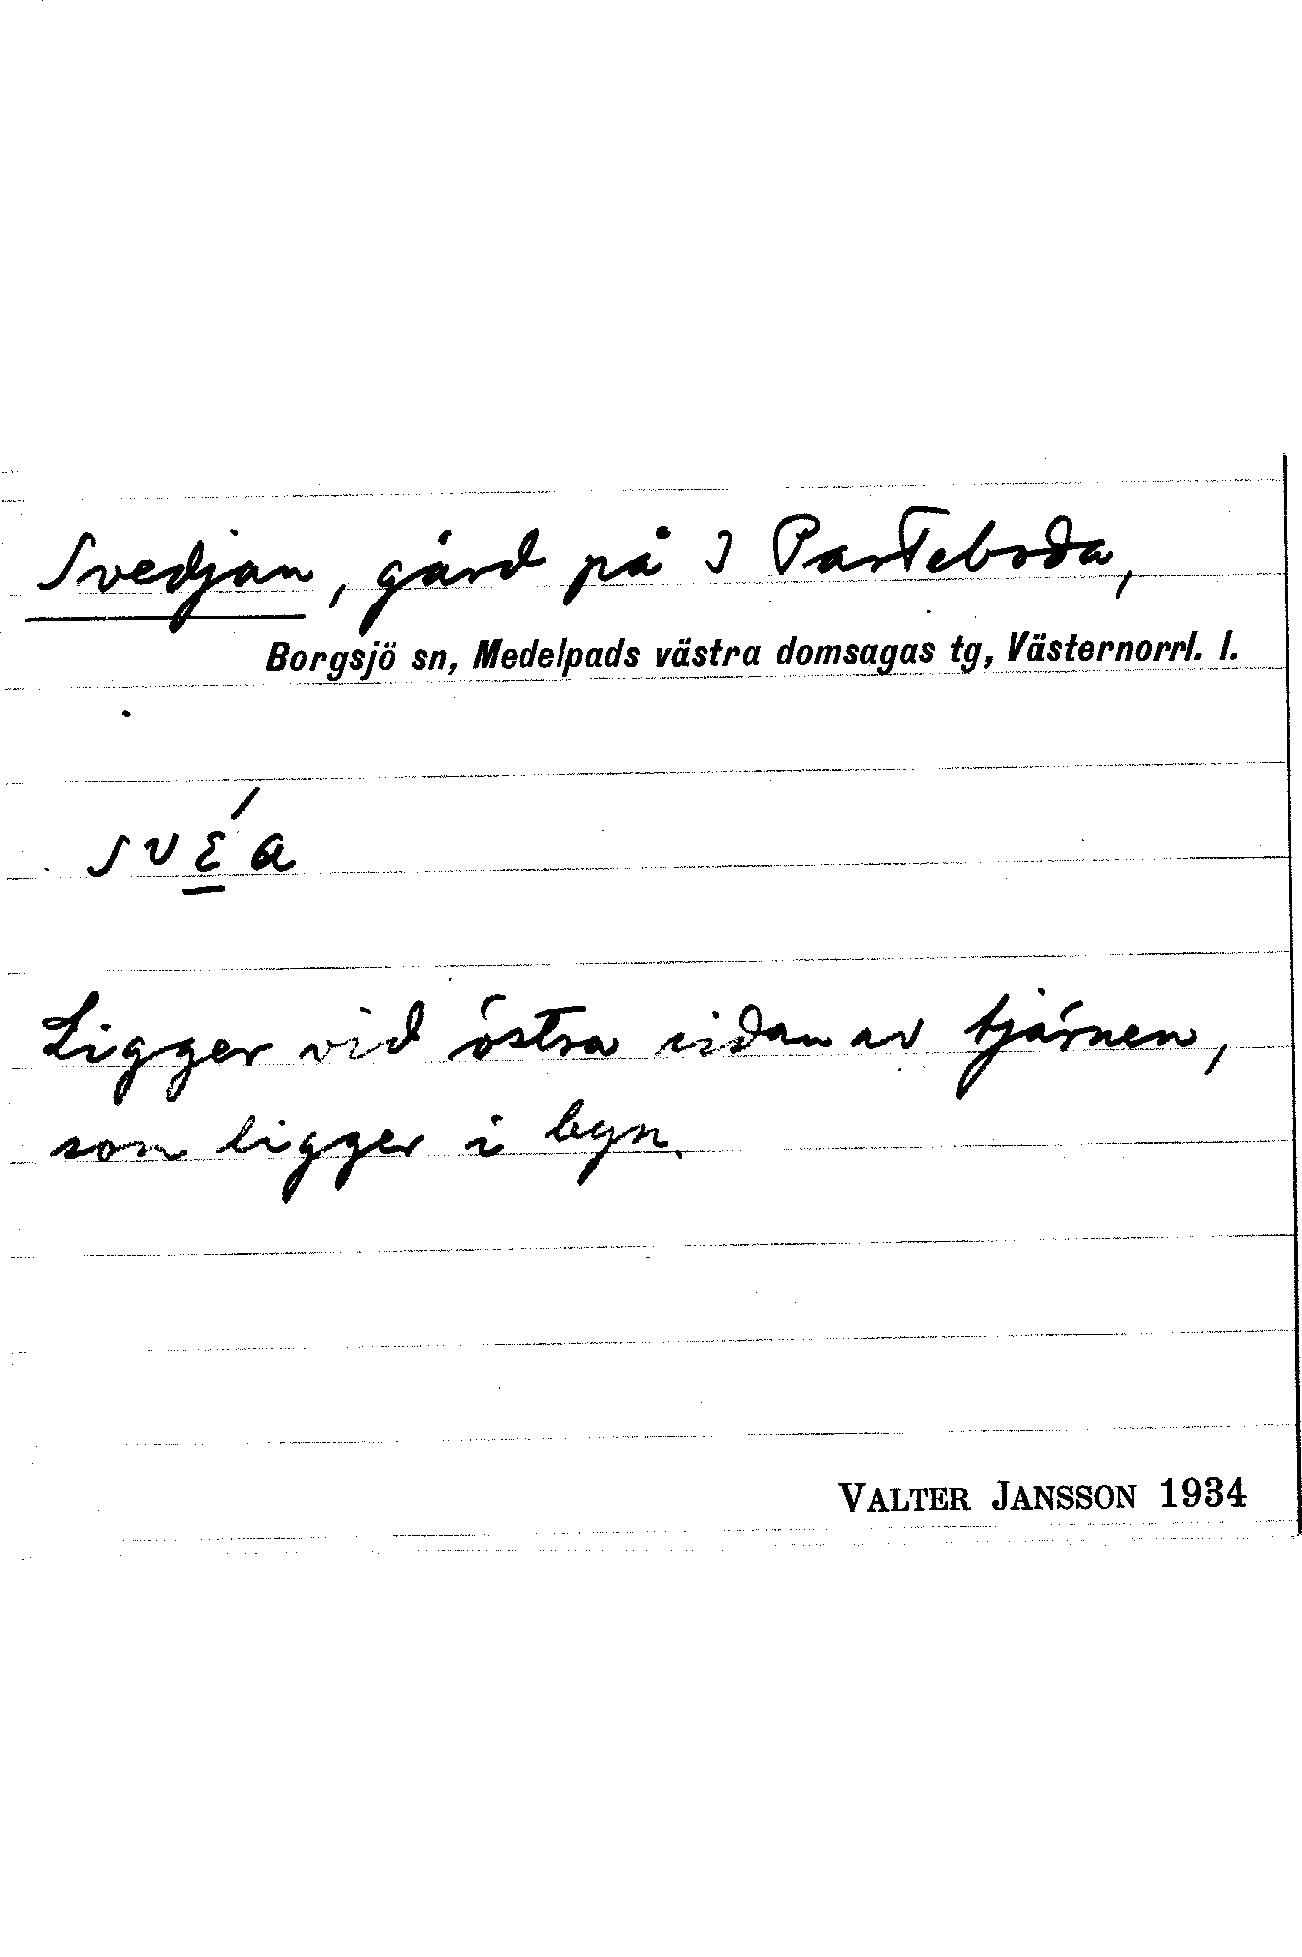 Svedjan, gård på J Parteboda,
Borgsjö sn, Medelpads västra domsagas tg, Västernorrl. l.
svɛ́a
Ligger vid östra sidan av tjärnen,
som ligger i byn.
VALTER JANSSON 1934